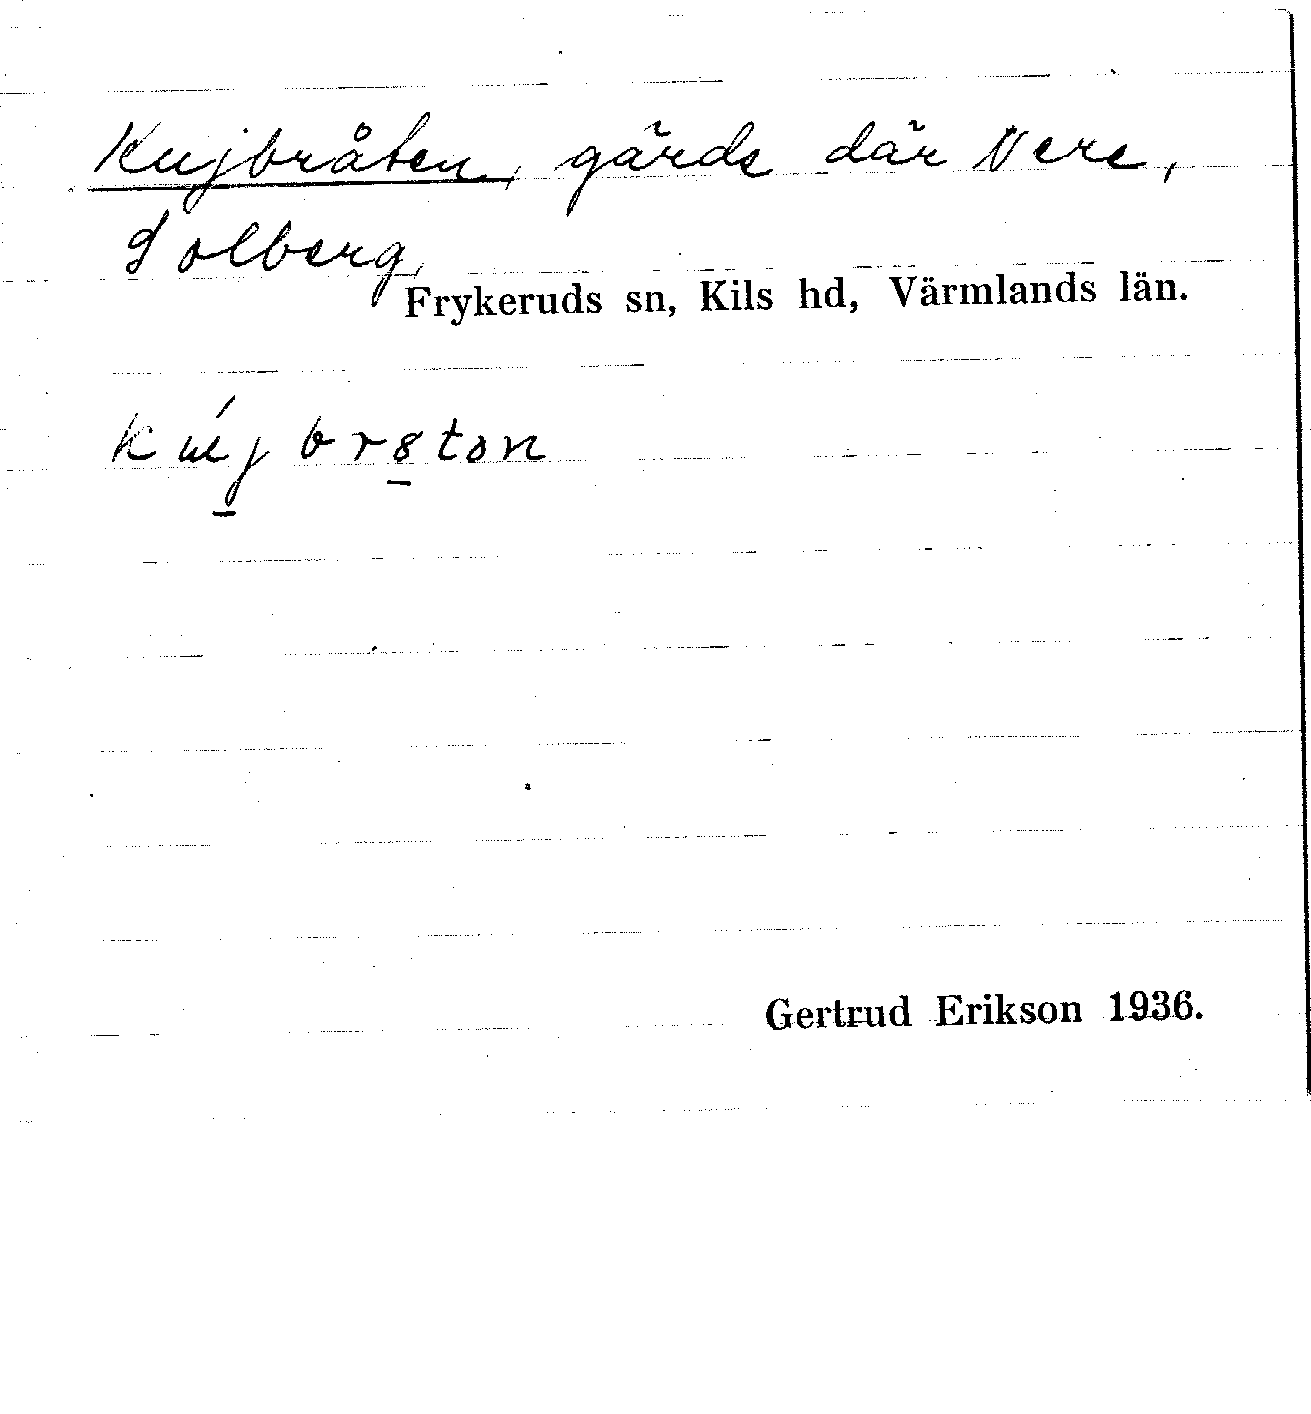 Kujbråten, gärde där Nere,
Solberg,
Frykeruds sn, Kils hd, Värmlands län.
Gertrud Erikson 1936.